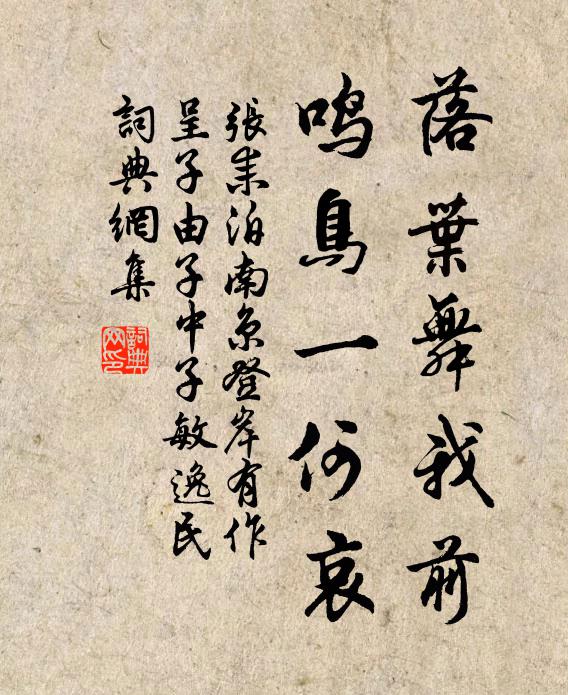 落葉舞我前
鳴鳥一何哀
張耒泊南京登岸有作
呈子由子中子敏逸民
詞典網集
詞典
网印